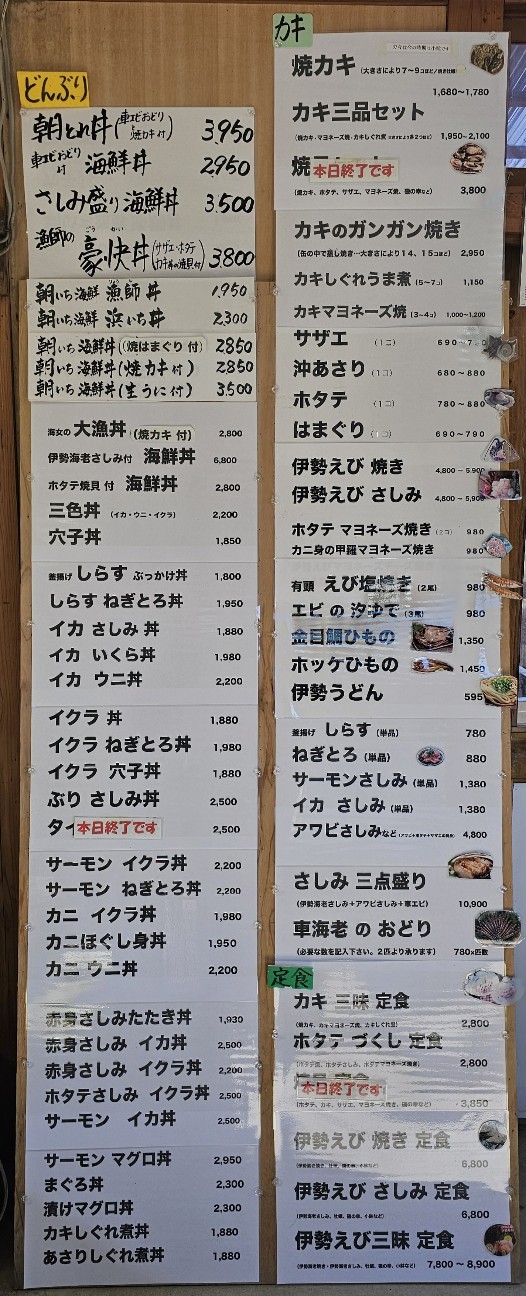 どんぶり
朝とれ丼(車エビおどり 焼カキ付) 3,950
車エビおどり付 海鮮丼 2950
さしみ盛り海鮮丼 3,500
漁師の豪快丼(サザエ・ホタテ カキ丼の焼貝付) 3,800
朝いち海鮮 漁師丼 1,950
朝いち海鮮 浜いち丼 2,300
朝いち海鮮丼(焼はまぐり 付) 2850
朝いち海鮮丼(焼カキ付) 2850
朝いち海鮮丼(生うに付) 3,500
海女の 大漁丼(焼カキ 付) 2,800
伊勢海老さしみ付 海鮮丼 6,800
ホタテ焼貝 付 海鮮丼 2,800
三色丼 (イカ・ウニ・イクラ) 2,200
穴子丼 1,850
釜揚げ しらす ぶっかけ丼 1,800
しらす ねぎとろ丼 1,950
イカ さしみ 丼 1,880
イカ いくら丼 1,980
イカ ウニ丼 2,200
イクラ 丼 1,880
イクラ ねぎとろ丼 1,980
イクラ 穴子丼 1,880
ぶり さしみ丼 2,500
タイ 本日終了です 2,500
サーモン イクラ丼 2,200
サーモン ねぎとろ丼 2,200
カニ イクラ丼 1,980
カニほぐし身丼 1,950
カニ ウニ丼 2,200
赤身さしみたたき丼 1,930
赤身さしみ イカ丼 2,500
赤身さしみ イクラ丼 2,200
ホタテさしみ イクラ丼 2,500
サーモン イカ丼 2,500
サーモン マグロ丼 2,950
まぐろ丼 2,300
漬けマグロ丼 2,300
カキしぐれ煮丼 1,880
あさりしぐれ煮丼 1,880
カキ
焼カキ (大きさにより7〜9コほど/焼き牡蠣) 1,680〜1,780
カキ三品セット
(焼カキ・マヨネーズ焼・カキしぐれ煮) 1,950〜2,100
焼 本日終了です
(焼カキ、ホタテ、サザエ、マヨネーズ焼、磯の幸など) 3,800
カキのガンガン焼き
(缶の中で蒸し焼き…大きさにより14、15コほど) 2,950
カキしぐれうま煮 (5〜7コ) 1,150
カキマヨネーズ焼 (3〜4コ) 1,000〜1,200
サザエ (1コ) 690〜7
沖あさり (1コ) 680〜880
ホタテ (1コ) 780〜880
はまぐり (1コ) 690〜790
伊勢えび 焼き 4,800〜5,900
伊勢えび さしみ 4,800〜5,900
ホタテ マヨネーズ焼き (2コ) 980
カニ身の甲羅マヨネーズ焼き 980
有頭 えび塩焼き (2尾) 980
エビ の 汐ゆで (3尾) 980
金目鯛ひもの 1,350
ホッケひもの 1,450
伊勢うどん 595
釜揚げ しらす (単品) 780
ねぎとろ (単品) 880
サーモンさしみ (単品) 1,380
イカ さしみ (単品) 1,380
アワビさしみなど 4,800
さしみ 三点盛り
(伊勢海老さしみ+アワビさしみ+車エビ) 10,900
車海老 の おどり
(必要な数を記入下さい。2匹より承ります) 780×匹数
定食
カキ 三昧 定食
(焼カキ、カキマヨネーズ焼、カキしぐれ煮) 2,800
ホタテ づくし 定食
(ホタテ焼、ホタテさしみ、ホタテマヨネーズ焼き) 2,800
本日終了です
(ホタテ、カキ、サザエ、マヨネーズ焼き、磯の幸など) 3,850
伊勢えび 焼き 定食
6,800
伊勢えび さしみ 定食
6,800
伊勢えび三昧 定食
7,800 〜 8,900